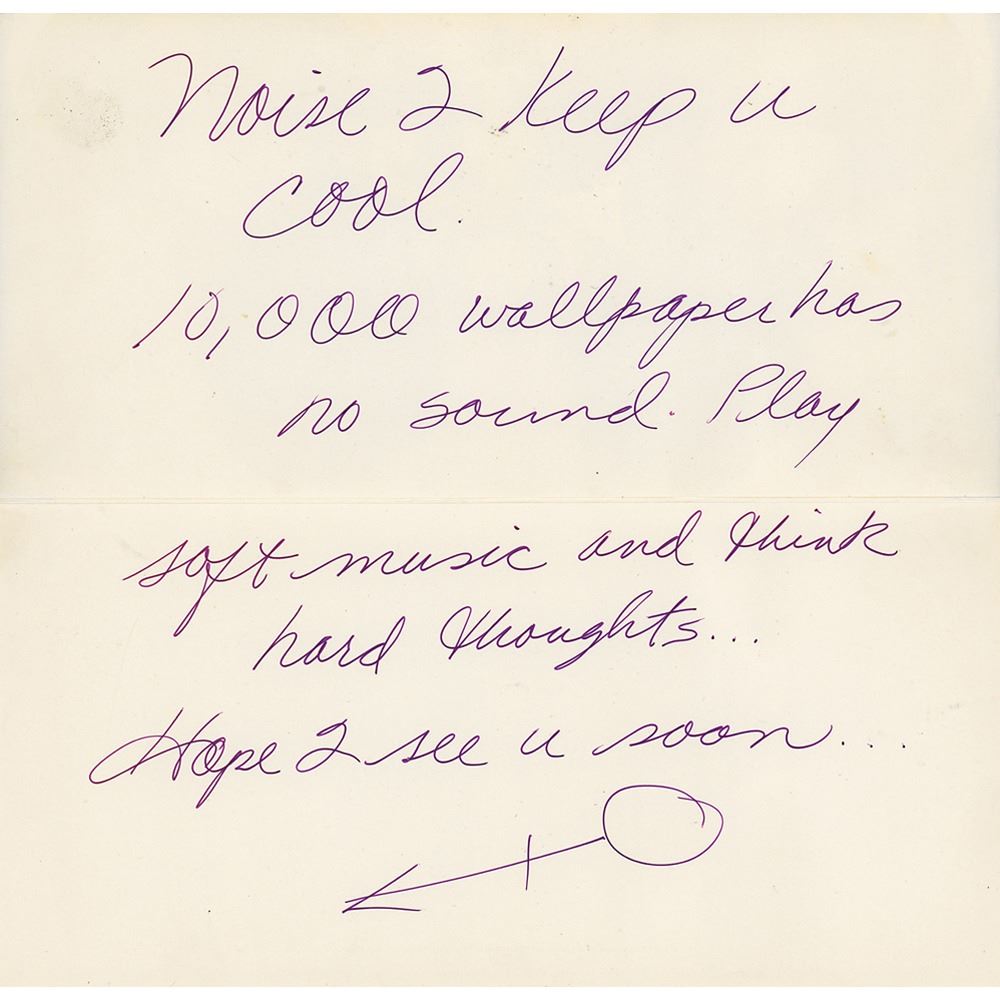 Noise 2 keep u
cool.
10,000 wallpaper has
no sound. Play
soft music and think
hard thoughts...
Hope 2 see u soon....